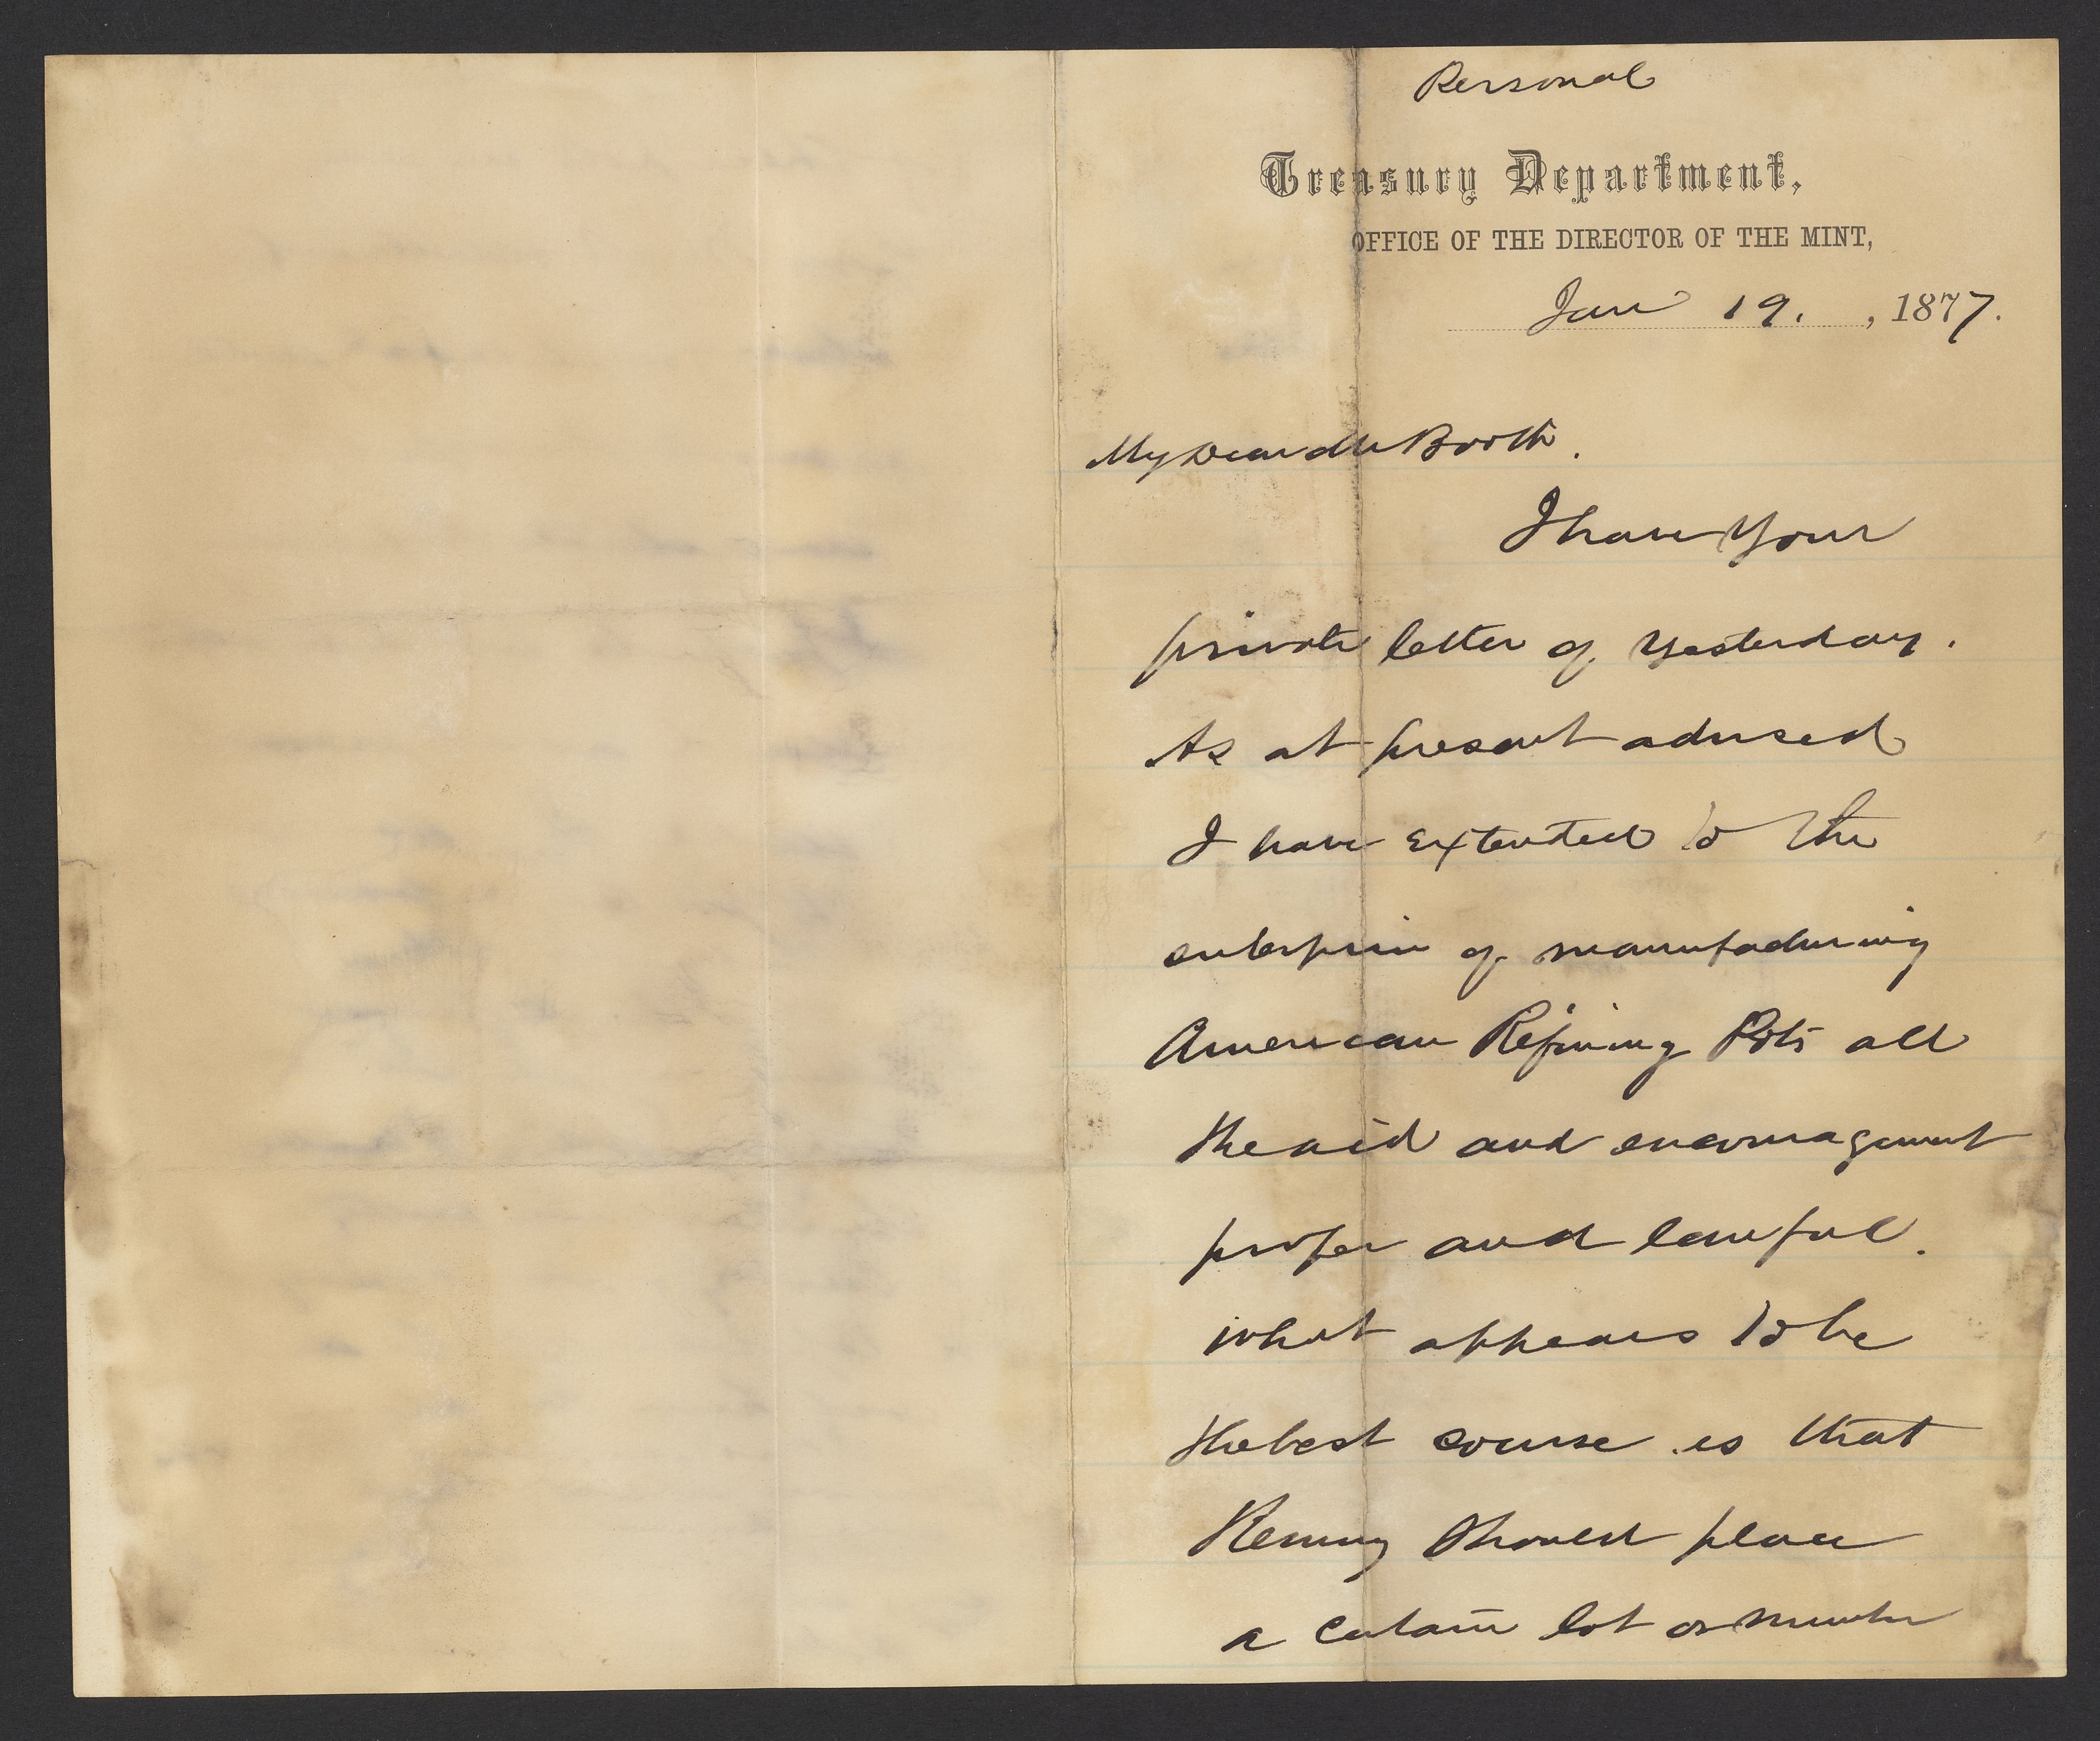 Personal
Treasury Department,
OFFICE OF THE DIRECTOR OF THE MINT,
Jan 19. , 1877.
My Dear Mr Booth.
I have your
private letter of yesterday.
As at present advised
I have extented to the
enterprise of manufacturing
American Refining Pots all
the aid and encouragement
proper and lawful.
What appears to be
the best course is that
should place
a certain lot or number